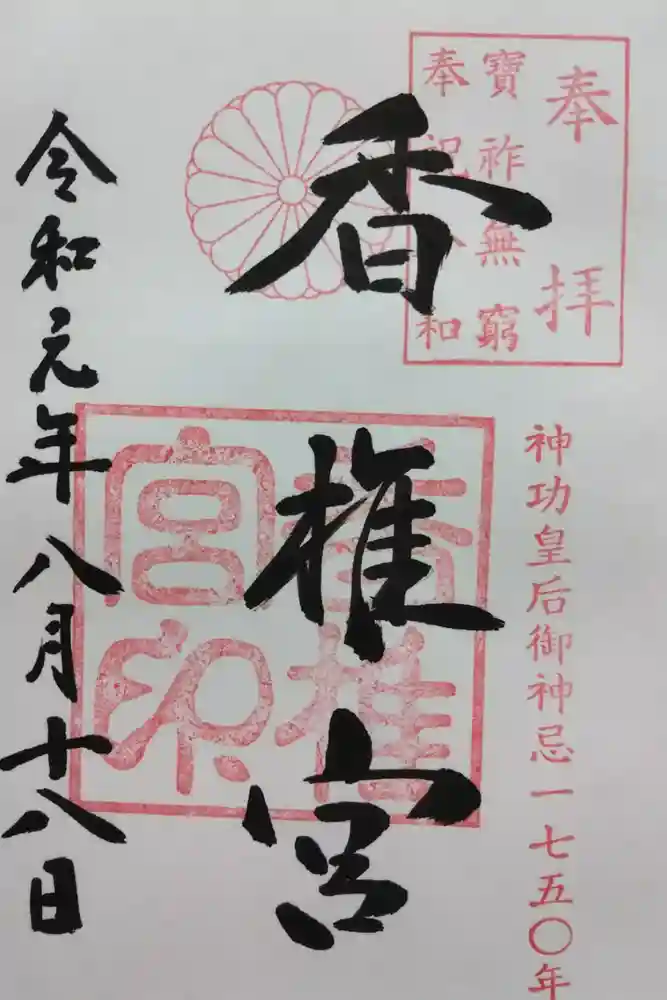 奉拝
寶祚無窮
奉祝令和
香椎宮
香椎宮印
神功皇后御神忌一七五〇年
令和元年八月十八日